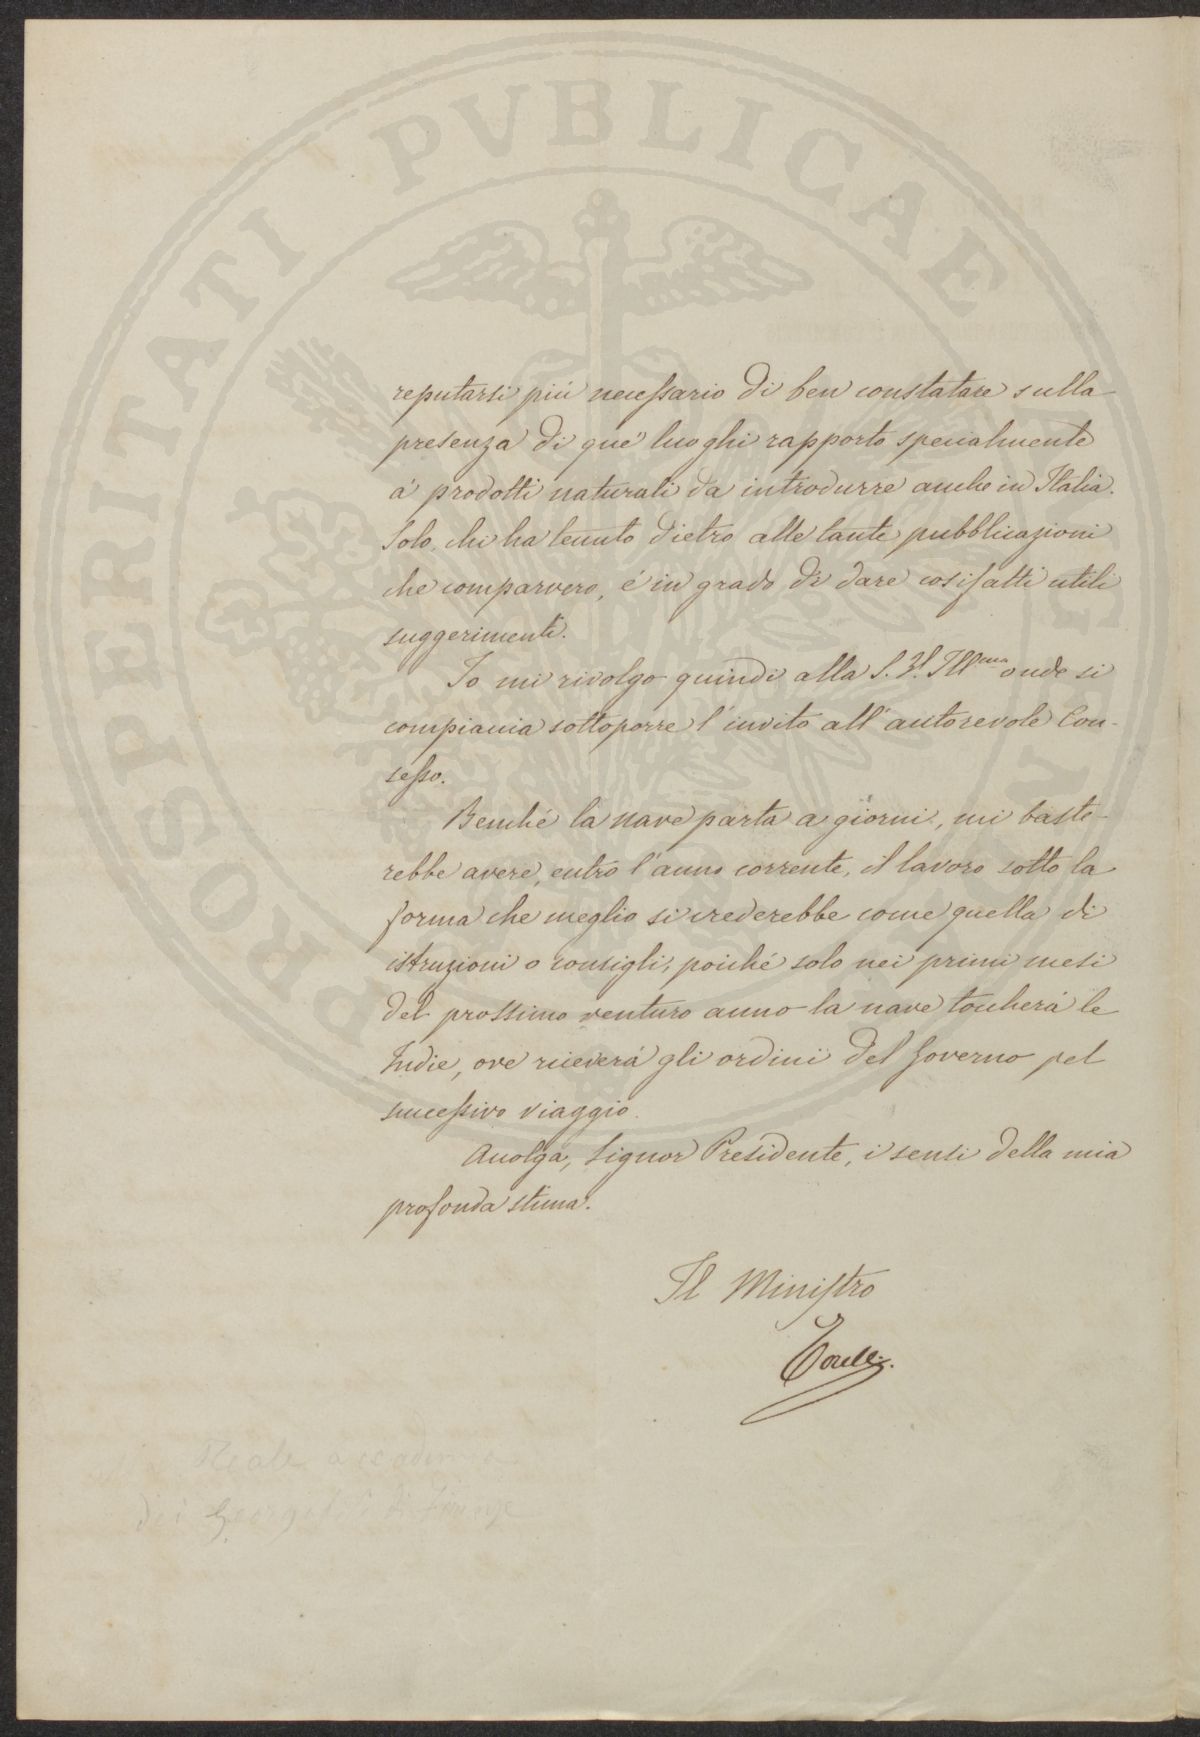 PROSPERITATI PVBLICAE
reputarsi più necessario di ben constatare sulla
presenza di que' luoghi rapporto specialmente
a' prodotti naturali da introdurre anche in Italia.
Solo, chi ha tenuto dietro alle tante pubblicazioni
che comparvero, é in grado di dare cosifatti utili
suggerimenti.
Io mi rivolgo quindi alla S. V. Ill.ma onde si
compiaccia sottoporre l'invito all'autorevole Con-
sesso.
Benché la nave parta a giorni, mi baste-
rebbe avere, entro l'anno corrente, il lavoro sotto la
forma che meglio si crederebbe come quella di
istruzioni o consigli, poiché solo nei primi mesi
del prossimo venturo anno la nave toccherà le
Indie, ove riceverà gli ordini del Governo pel
successivo viaggio.
Accolga, Signor Presidente, i sensi della mia
profonda stima.
Il Ministro
Torelli
Reale accademia
dei Georgofili di Firenze